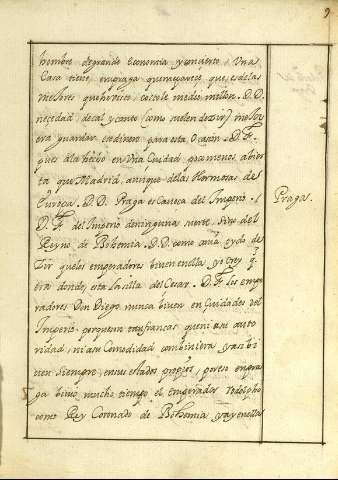 9
hombre de grande Economia y convite. Una
Casa tiene en praga que me parece que es de las
mejores que he visto costole medio millon. D. D.
necedad de cal y canto (como suelen dezir) mejor
era guardar ese dinero para esta Ocasion. D. F.
pues a la hecho en Una Ciudad poco menos abier
ta que Madrid, aunque de las Hermosas de
Europa. D. D. Praga es Caveca del Imperio.
D. F. del Imperio de ninguna suerte, sino del
Reyno de Bohemia. D. D. como avia oydo de
Zir que los emperadores biuen en ella yo crey q̃
era donde esta la silla del Cesar. D. F. los empe
radores Don Diego nunca biuen en Ciudades del
Imperio porque son tan francas que ni a su auto
ridad, ni a su Comodidad combiniera y asi bi
uen siempre en sus estados propios, por eso en pra
ga biuio mucho tiempo el emperador Rodolpho
como Rey Coronado de Bohemia y ay en ella
Praga.